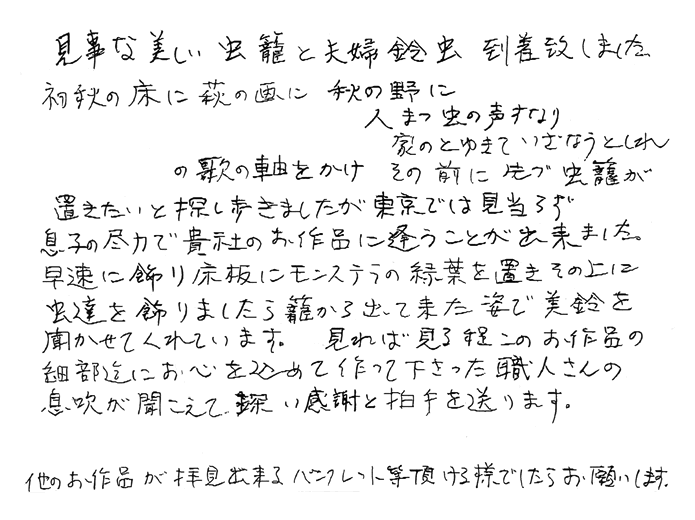 見事な美しい虫籠と夫婦鈴虫 到着致しました
初秋の床に萩の画に 秋の野に
人まつ虫の声すなり
家のとゆきていざなうとしれ
の歌の軸をかけ その前に先づ虫籠が
置きたいと探し歩きましたが東京では見当らず
息子の尽力で貴社のお作品に逢うことが出来ました。
早速に飾り床板にモンステラの緑葉を置きその上に
虫達を飾りましたら籠から出て来た姿で美鈴を
聞かせてくれています。 見れば見る程このお作品の
細部迄にお心を込めて作って下さった職人さんの
息吹が聞こえて 深い感謝と拍手を送ります。
他のお作品が拝見出来るパンフレット等頂ける様でしたらお願いします。